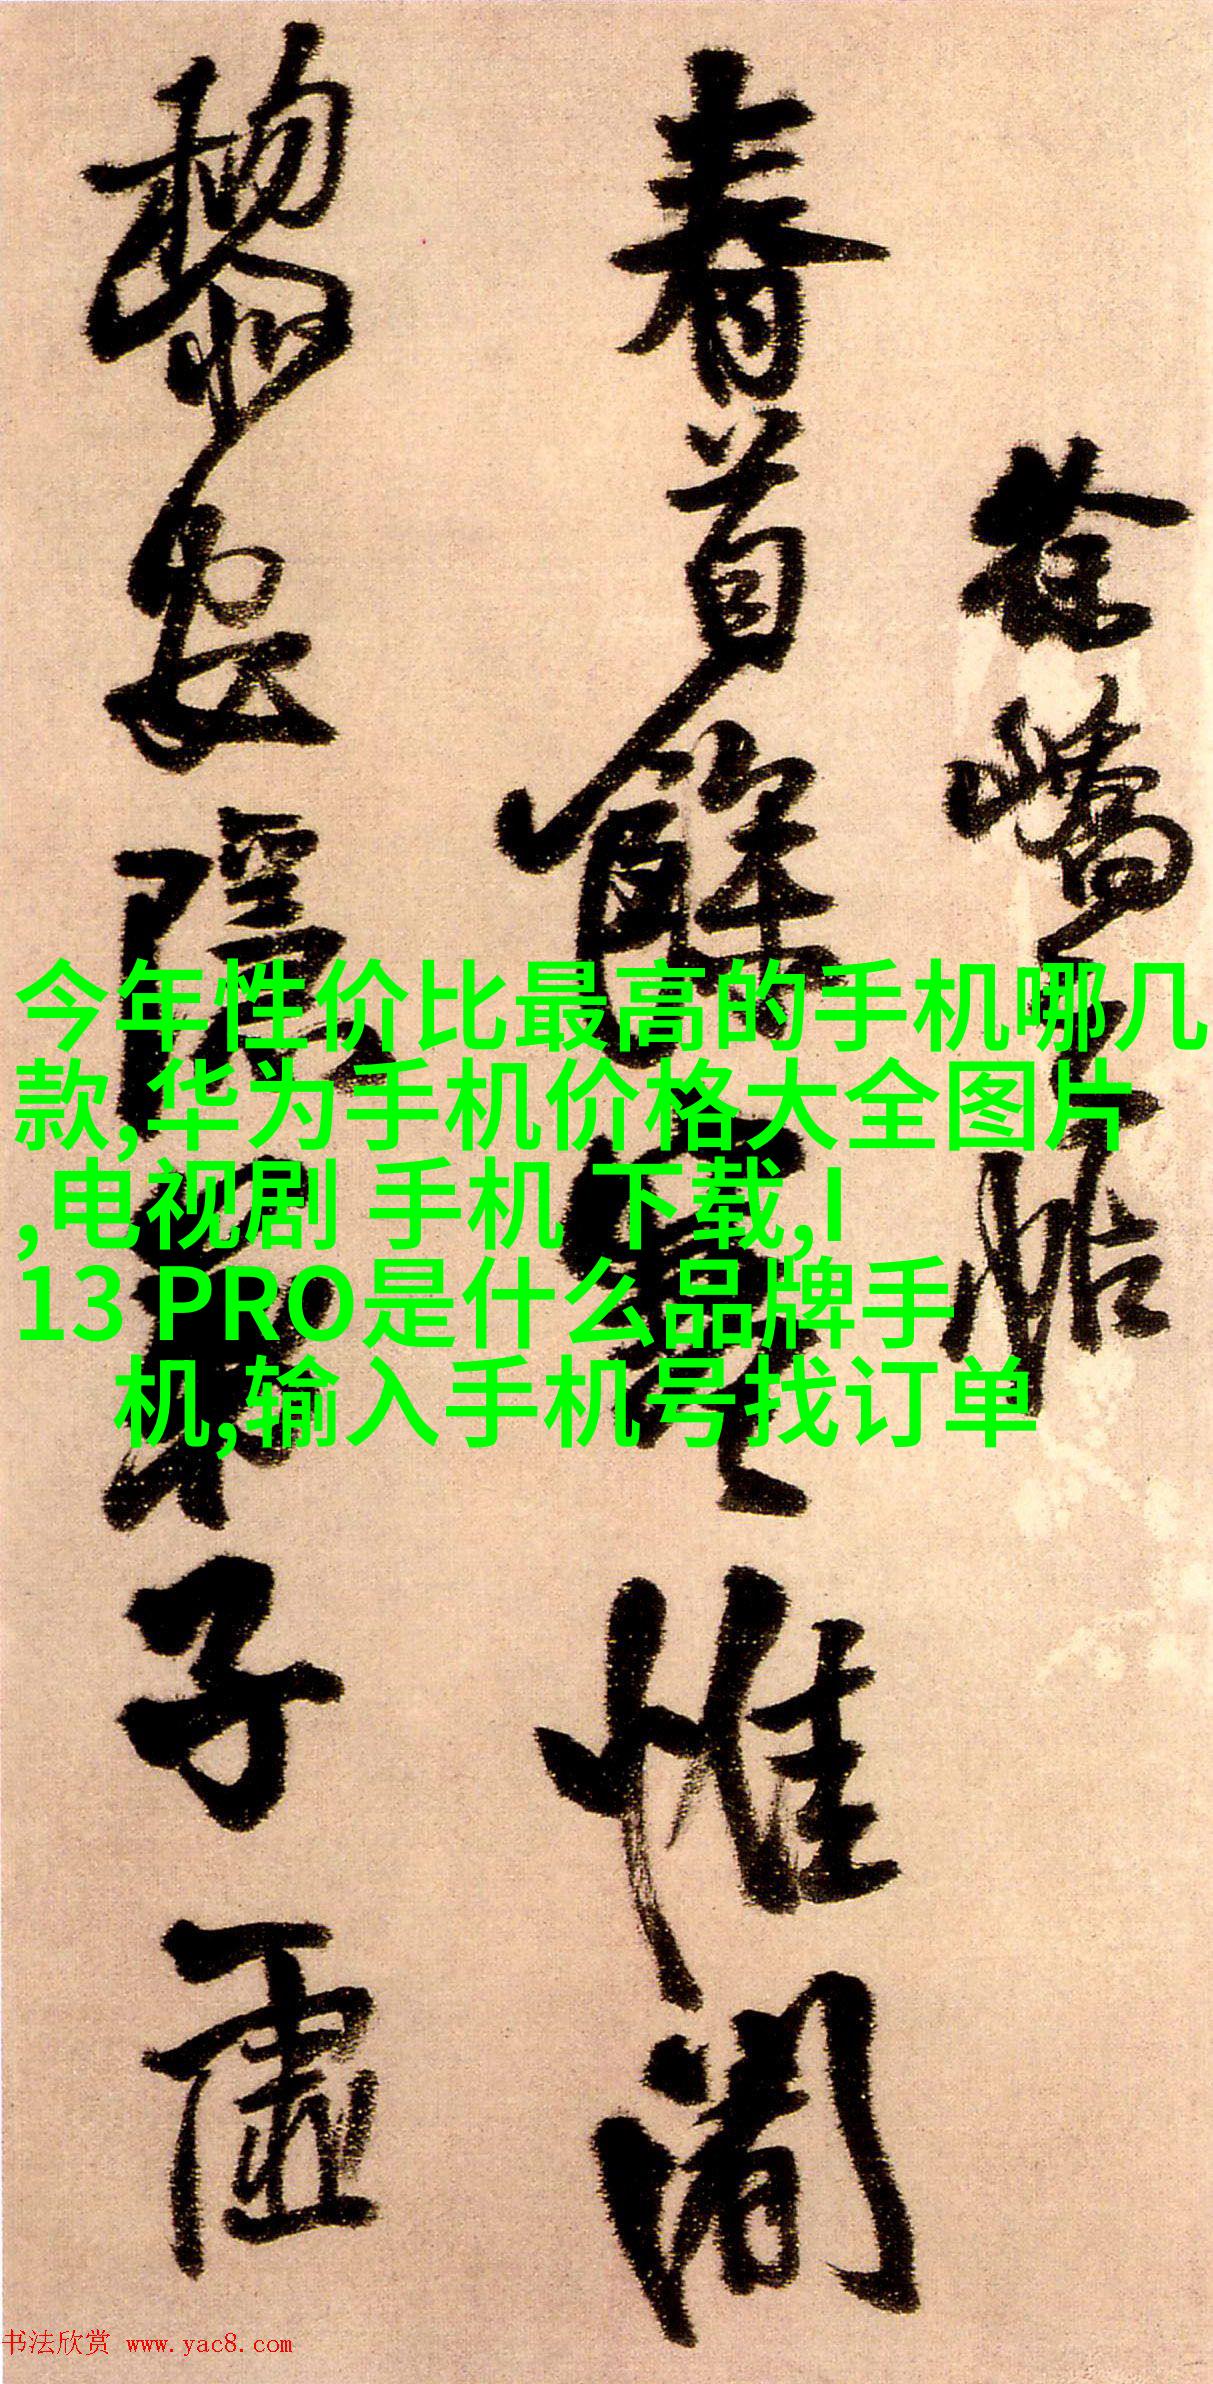 徐嶠之帖
春首餘寒惟闍
黎安隱弟子虛
今年性价比最高的手机哪几
款,华为手机价格大全图片
,电视剧 手机 下载,I
13 PRO是什么品牌手
机,输入手机号找订单
书法欣赏 www.yac8.com